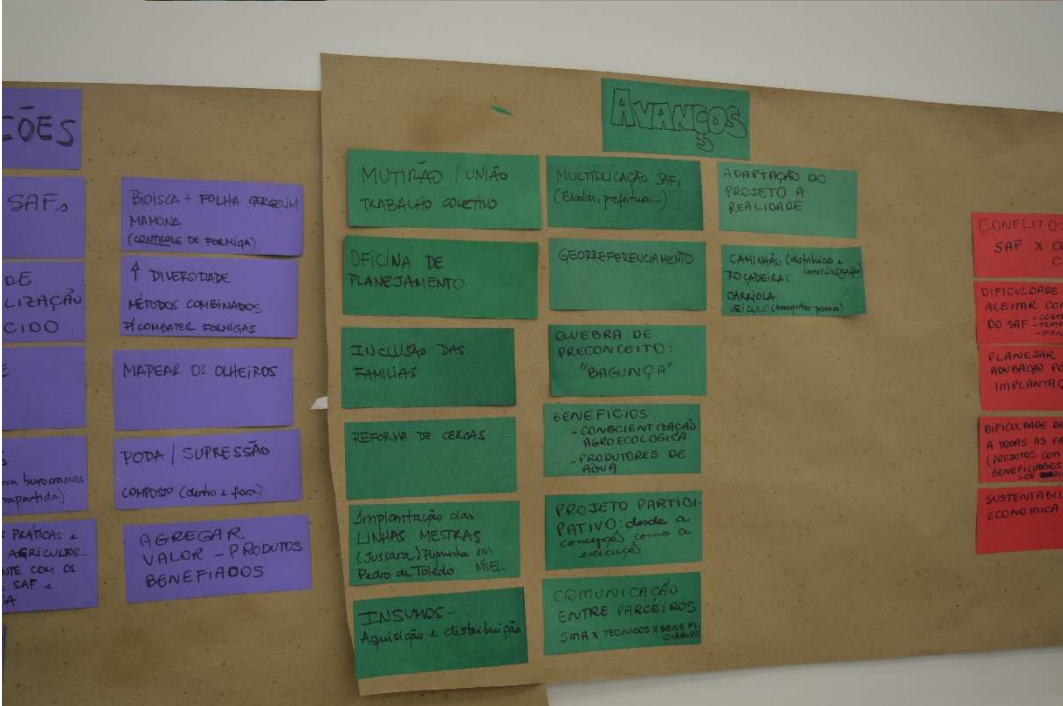 ÇÕES
SAFs
DE
LIZAÇÃO
CIDO
burocracias
PRÁTICAS e
AGRICULTOR
NTE COM OS
SAF e
BIOISCA + FOLHA GERGELIM
MAMONA
(CONTROLE DE FORMIGA)
↑ DIVERSIDADE
MÉTODOS COMBINADOS
P/ COMBATER FORMIGAS
MAPEAR OS OLHEIROS
PODA / SUPRESSÃO
COMPOSTO (dentro e fora)
AGREGAR
VALOR - PRODUTOS
BENEFIADOS
AVANÇOS
MUTIRÃO / UNIÃO
TRABALHO COLETIVO
OFICINA DE
PLANEJAMENTO
INCLUSÃO DAS
FAMÍLIAS
REFORMA DE CERCAS
Implantação das
LINHAS MESTRAS
(Jussara) Pupunha em
Pedro de Toledo NÍVEL
INSUMOS -
Aquisição e distribuição
MULTIPLICAÇÃO SAFs
(Escolas, prefeitura...)
GEORREFERENCIAMENTO
QUEBRA DE
PRECONCEITO:
"BAGUNÇA"
BENEFÍCIOS
- CONSCIENTIZAÇÃO
AGROECOLOGICA
- PRODUTORES DE
ÁGUA
PROJETO PARTICI-
PATIVO: desde a
concepção como a
execução.
COMUNICAÇÃO
ENTRE PARCEIROS
SMA X TECNICOS X BENEFI-
CIÁRIOS
ADAPTAÇÃO DO
PROJETO A
REALIDADE
CAMINHÃO (distribuição e
comercialização)
ROÇADEIRAS
CARRIOLA
VEÍCULO (transportar pessoas)
CONFLITO
SAF X
DIFICULDADE
ACEITAR
DO SAF
PLANEJAR
ADUBAÇÃO
IMPLANTAÇ
DIFICULDADE DE
A TODAS AS FA
(PROJETOS COM
BENEFICIÁRIOS
SUSTENTABIL
ECONOMICA